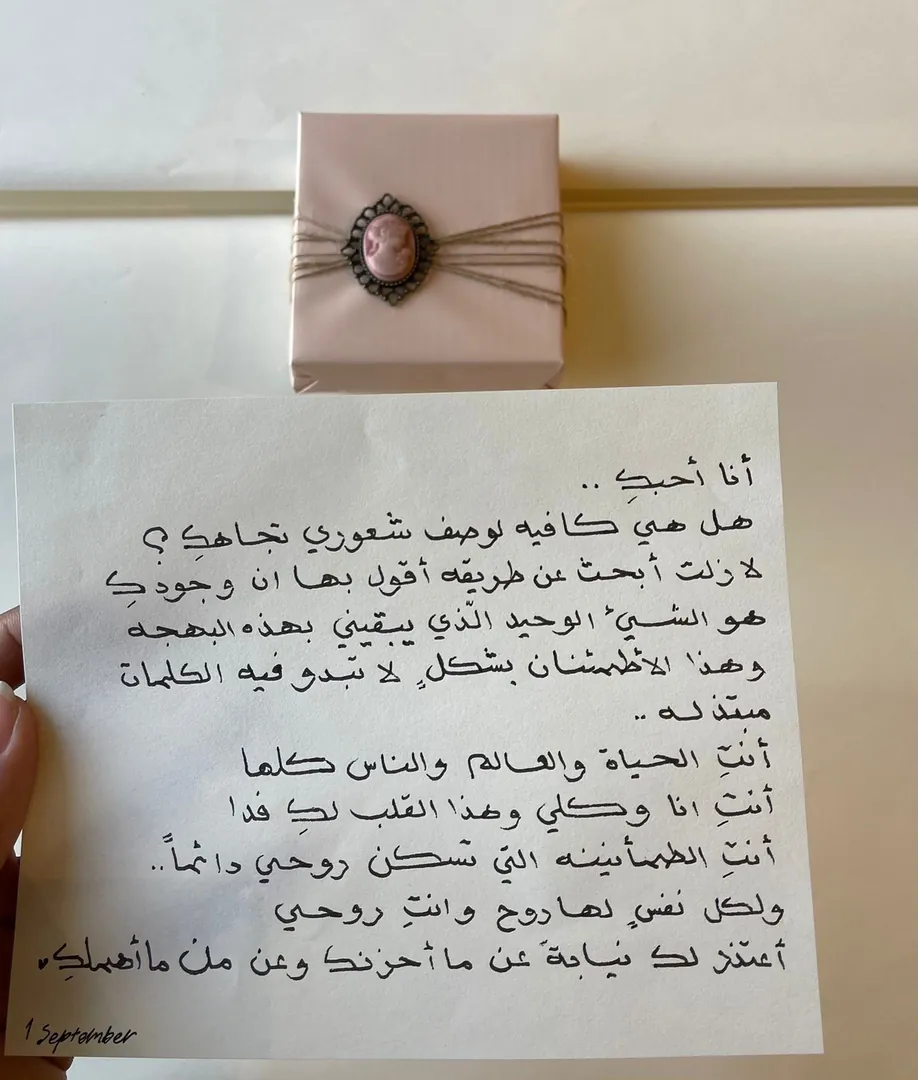 أنا أحبكِ ..
هل هي كافيه لوصف شعوري تجاهكِ ؟
لا زلت أبحث عن طريقه أقول بها ان وجودكِ
هو الشيئ الوحيد الّذي يبقيني بهذه البهجه
وهذا الأطمئنان بشكلٍ لا تبدو فيه الكلمات
مبتذله ..
أنتِ الحياة والعالم والناس كلها
أنتِ انا وكلي وهذا القلب لكِ فدا
أنتِ الطمأنينه التي تسكن روحي دائماً..
ولكل نفسٍ لها روح وانتِ روحي
أعتذر لك نيابةً عن ما أحزنك وعن من ما أهملكِ
1 September